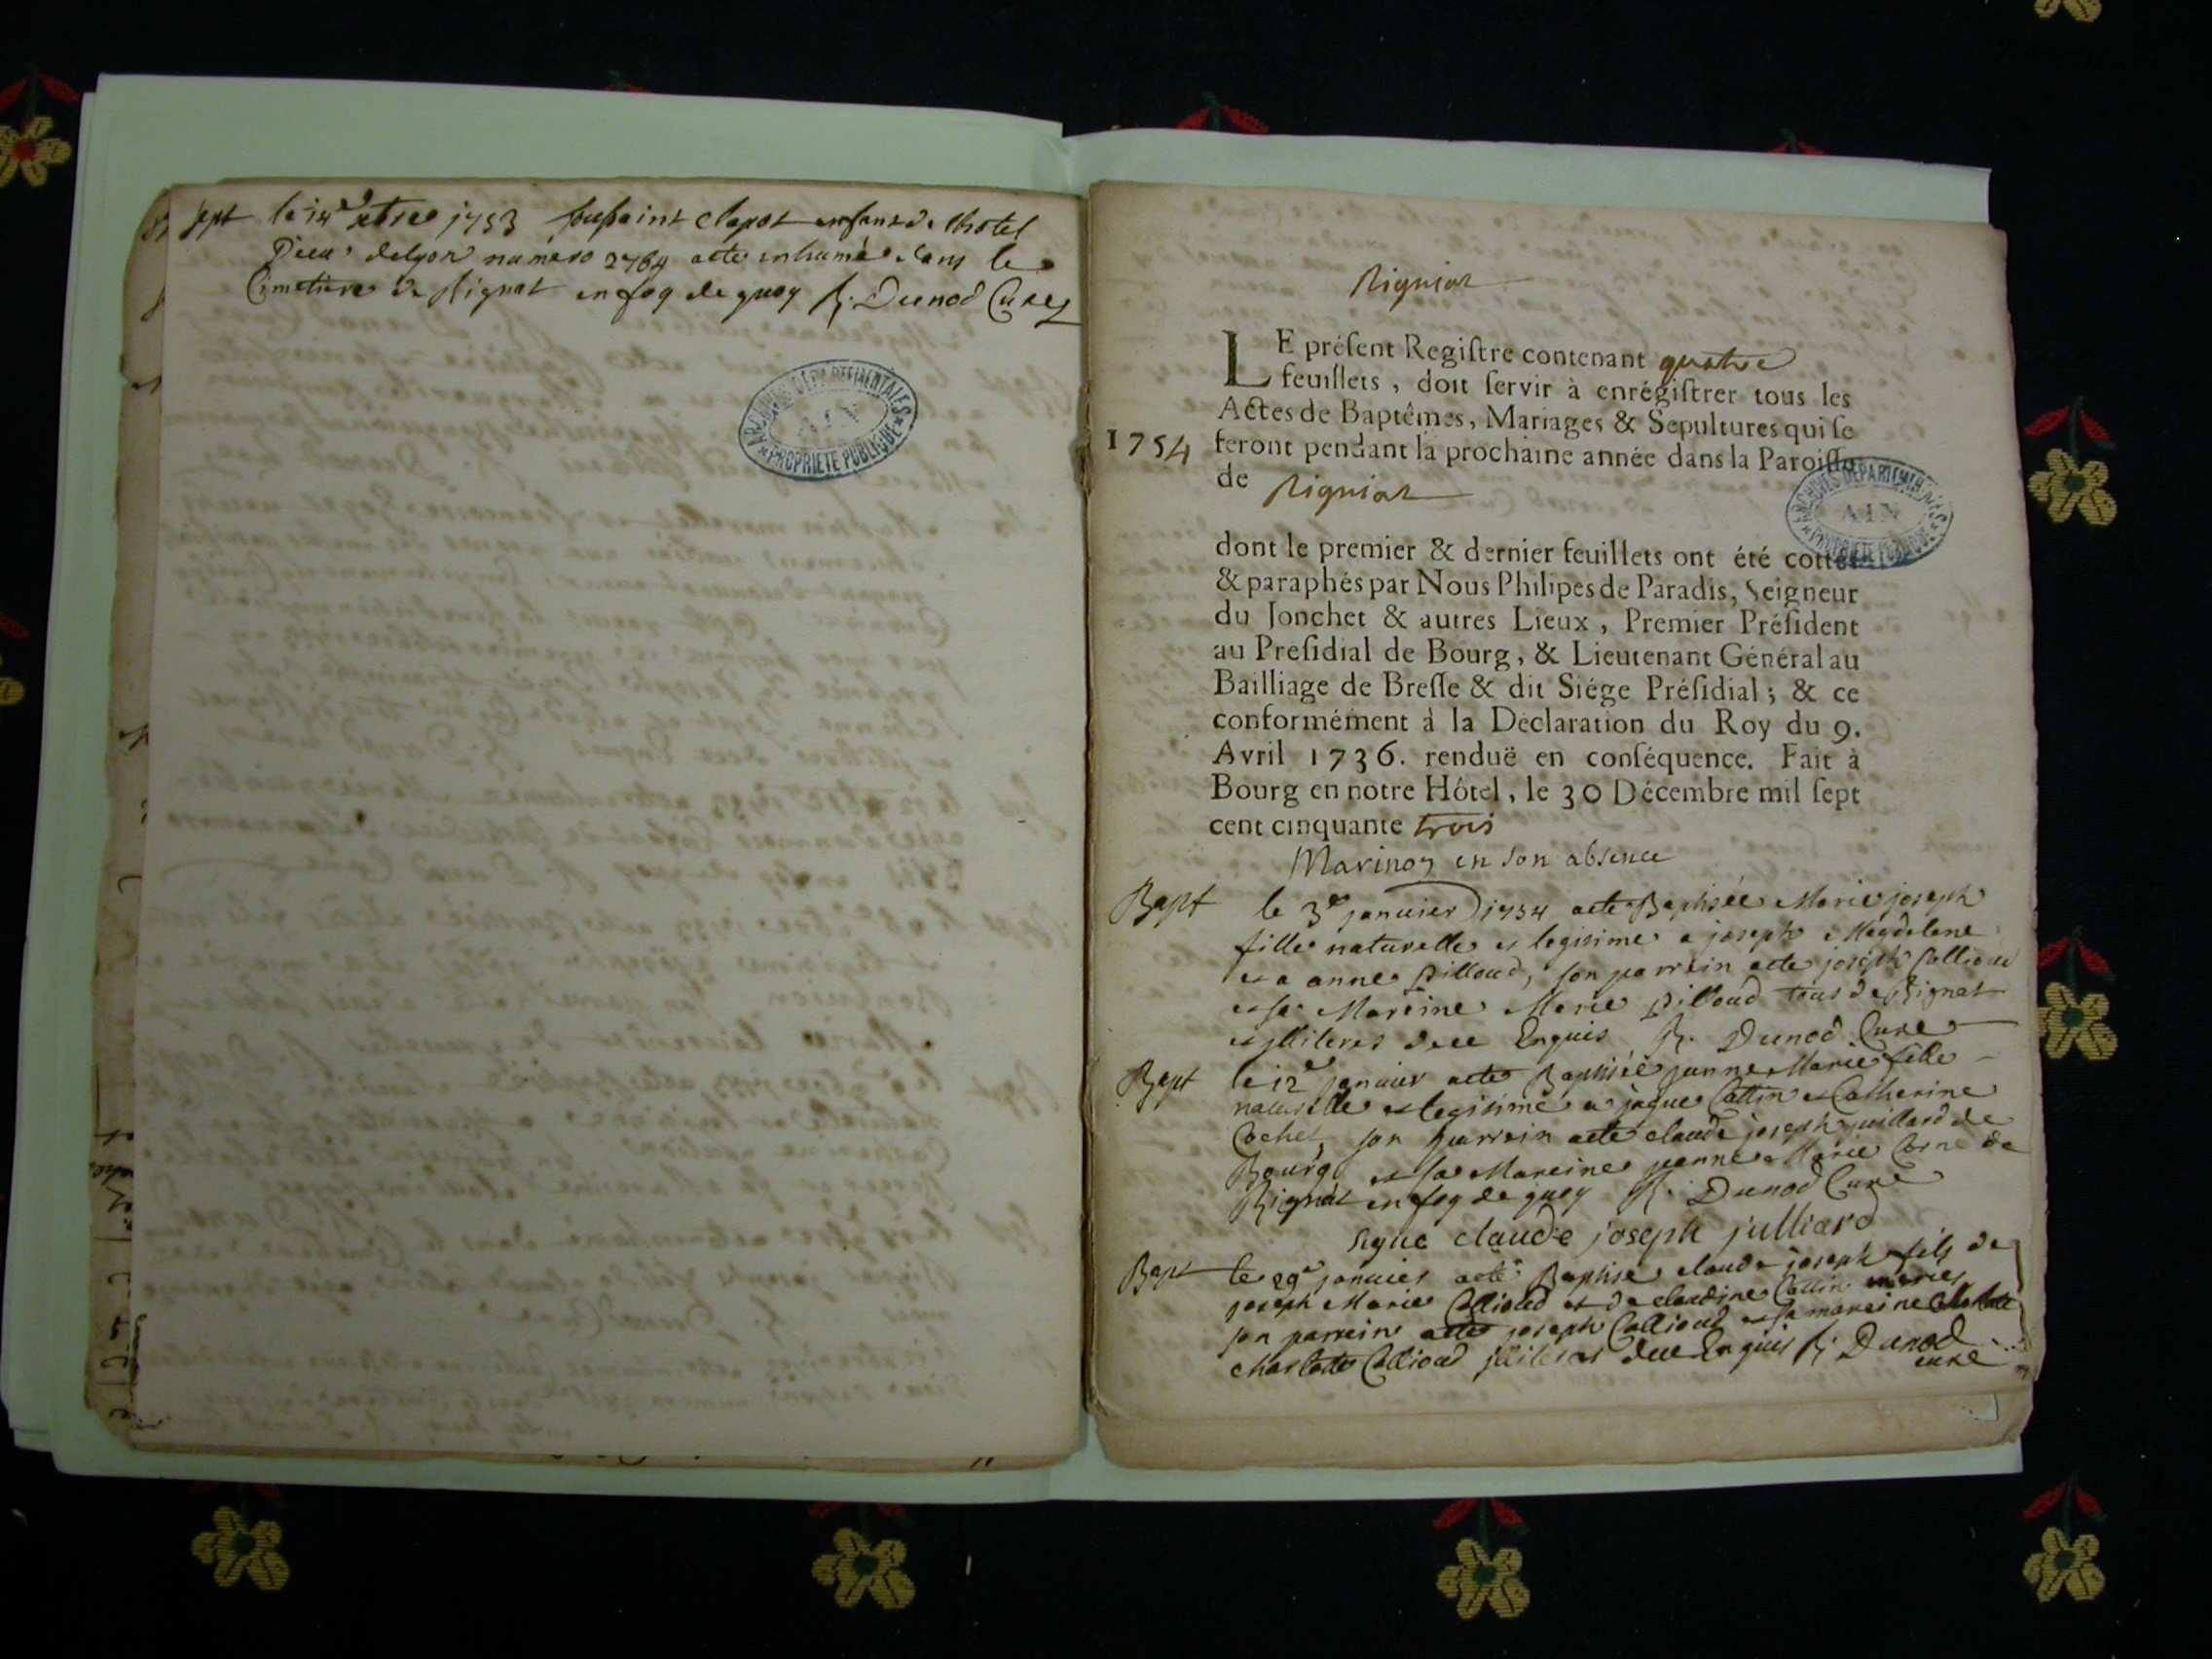 Sept le 14e xbre 1753 toussaint clapot enfant de lhotel
Dieu delyon numero 2764 aete inhumé dans le
Cimetiere de Rignat en foy de quoy R. Dunod Cure
ARCHIVES DEPARTEMENTALES
AIN
PROPRIETE PUBLIQUE
Rigniat
LE présent Registre contenant quatre
feuillets, doit servir à enrégistrer tous les
Actes de Baptêmes, Mariages & Sepultures qui se
1754 feront pendant la prochaine année dans la Paroisse
de Rigniat
ARCHIVES DEPARTEMENTALES
AIN
PROPRIETE PUBLIQUE
dont le premier & dernier feuillets ont été cottés
& paraphés par Nous Philipes de Paradis, Seigneur
du Jonchet & autres Lieux, Premier Président
au Présidial de Bourg, & Lieutenant Général au
Bailliage de Bresse & dit Siége Présidial; & ce
conformément à la Déclaration du Roy du 9.
Avril 1736. renduë en conséquence. Fait à
Bourg en notre Hôtel, le 30 Décembre mil sept
cent cinquante trois
en son absence
Bapt le 3e janvier 1754 aete Baptisée Marie joseph
fille naturelle et legitime a joseph Magdelene
et a anne pilloud, son parrein aete joseph Collioud
et sa Mareine Marie pilloud tous de Rignat
illiteres de ce Enquis R. Dunod Cure
Bapt le 12e janvier aete Baptisée janne Marie fille
naturelle et legitime a jaque Cattin et Catherine
Cochet, son parrein aete claude joseph juillard de
Bourg et sa Mareine janne Marie Corne de
Rignat en foy de quoy R. Dunod Cure
signe claude joseph julliard
Bapt le 29e janvier aeté Baptisé claude joseph fils de
joseph Marie Collioud et de claudine Cattin maries
son parrein aete joseph Collioud et sa mareine
charlotte Collioud illiteres de ce Enquis R. Dunod
cure